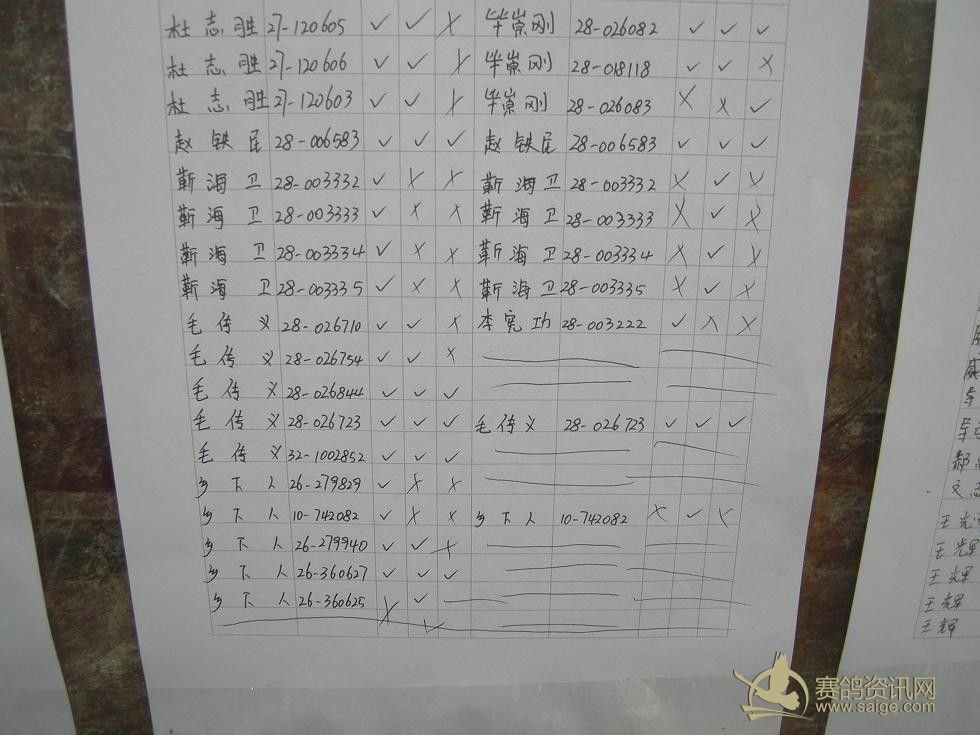 杜志胜 27-120605 ✓ ✓ ✗ 毕崇刚 28-026082 ✓ ✓ ✓
杜志胜 27-120606 ✓ ✓ ✗ 毕崇刚 28-018118 ✓ ✓ ✗
杜志胜 27-120603 ✓ ✓ ✗ 毕崇刚 28-026083 ✗ ✗ ✓
赵铁 28-006583 ✓ ✓ ✓ 赵铁 28-006583 ✓ ✓ ✓
靳海卫 28-003332 ✓ ✗ ✗ 靳海卫 28-003332 ✗ ✓ ✗
靳海卫 28-003333 ✓ ✗ ✗ 靳海卫 28-003333 ✗ ✓ ✗
靳海卫 28-003334 ✓ ✗ ✗ 靳海卫 28-003334 ✗ ✓ ✗
靳海卫 28-003335 ✓ ✗ ✗ 靳海卫 28-003335 ✗ ✓ ✗
毛传义 28-026710 ✓ ✓ ✗ 李宪功 28-003222 ✓ ✗ ✗
毛传义 28-026754 ✓ ✓ ✗
毛传义 28-026844 ✓ ✓ ✓
毛传义 28-026723 ✓ ✓ ✓ 毛传义 28-026723 ✓ ✓ ✓
毛传义 32-1002852 ✓ ✓ ✓
乡下人 26-279829 ✓ ✗ ✗
乡下人 10-742082 ✓ ✗ ✗ 乡下人 10-742082 ✗ ✓ ✗
乡下人 26-279940 ✓ ✓ ✗
乡下人 26-360627 ✓ ✓ ✓
乡下人 26-360625 ✗ ✓
威
郝
文志
王光
王辉
王辉
王辉
王辉
赛鸽资讯网
www.saige.com